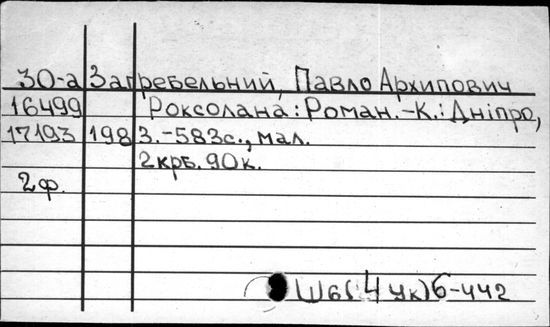 30-а Загребельний, Павло Архипович
16499 Роксолана: Роман.-К.: Дніпро,
17193 1983.-583с., мал.
2крб. 90к.
2ф.
Ш6(4Ук)6-442